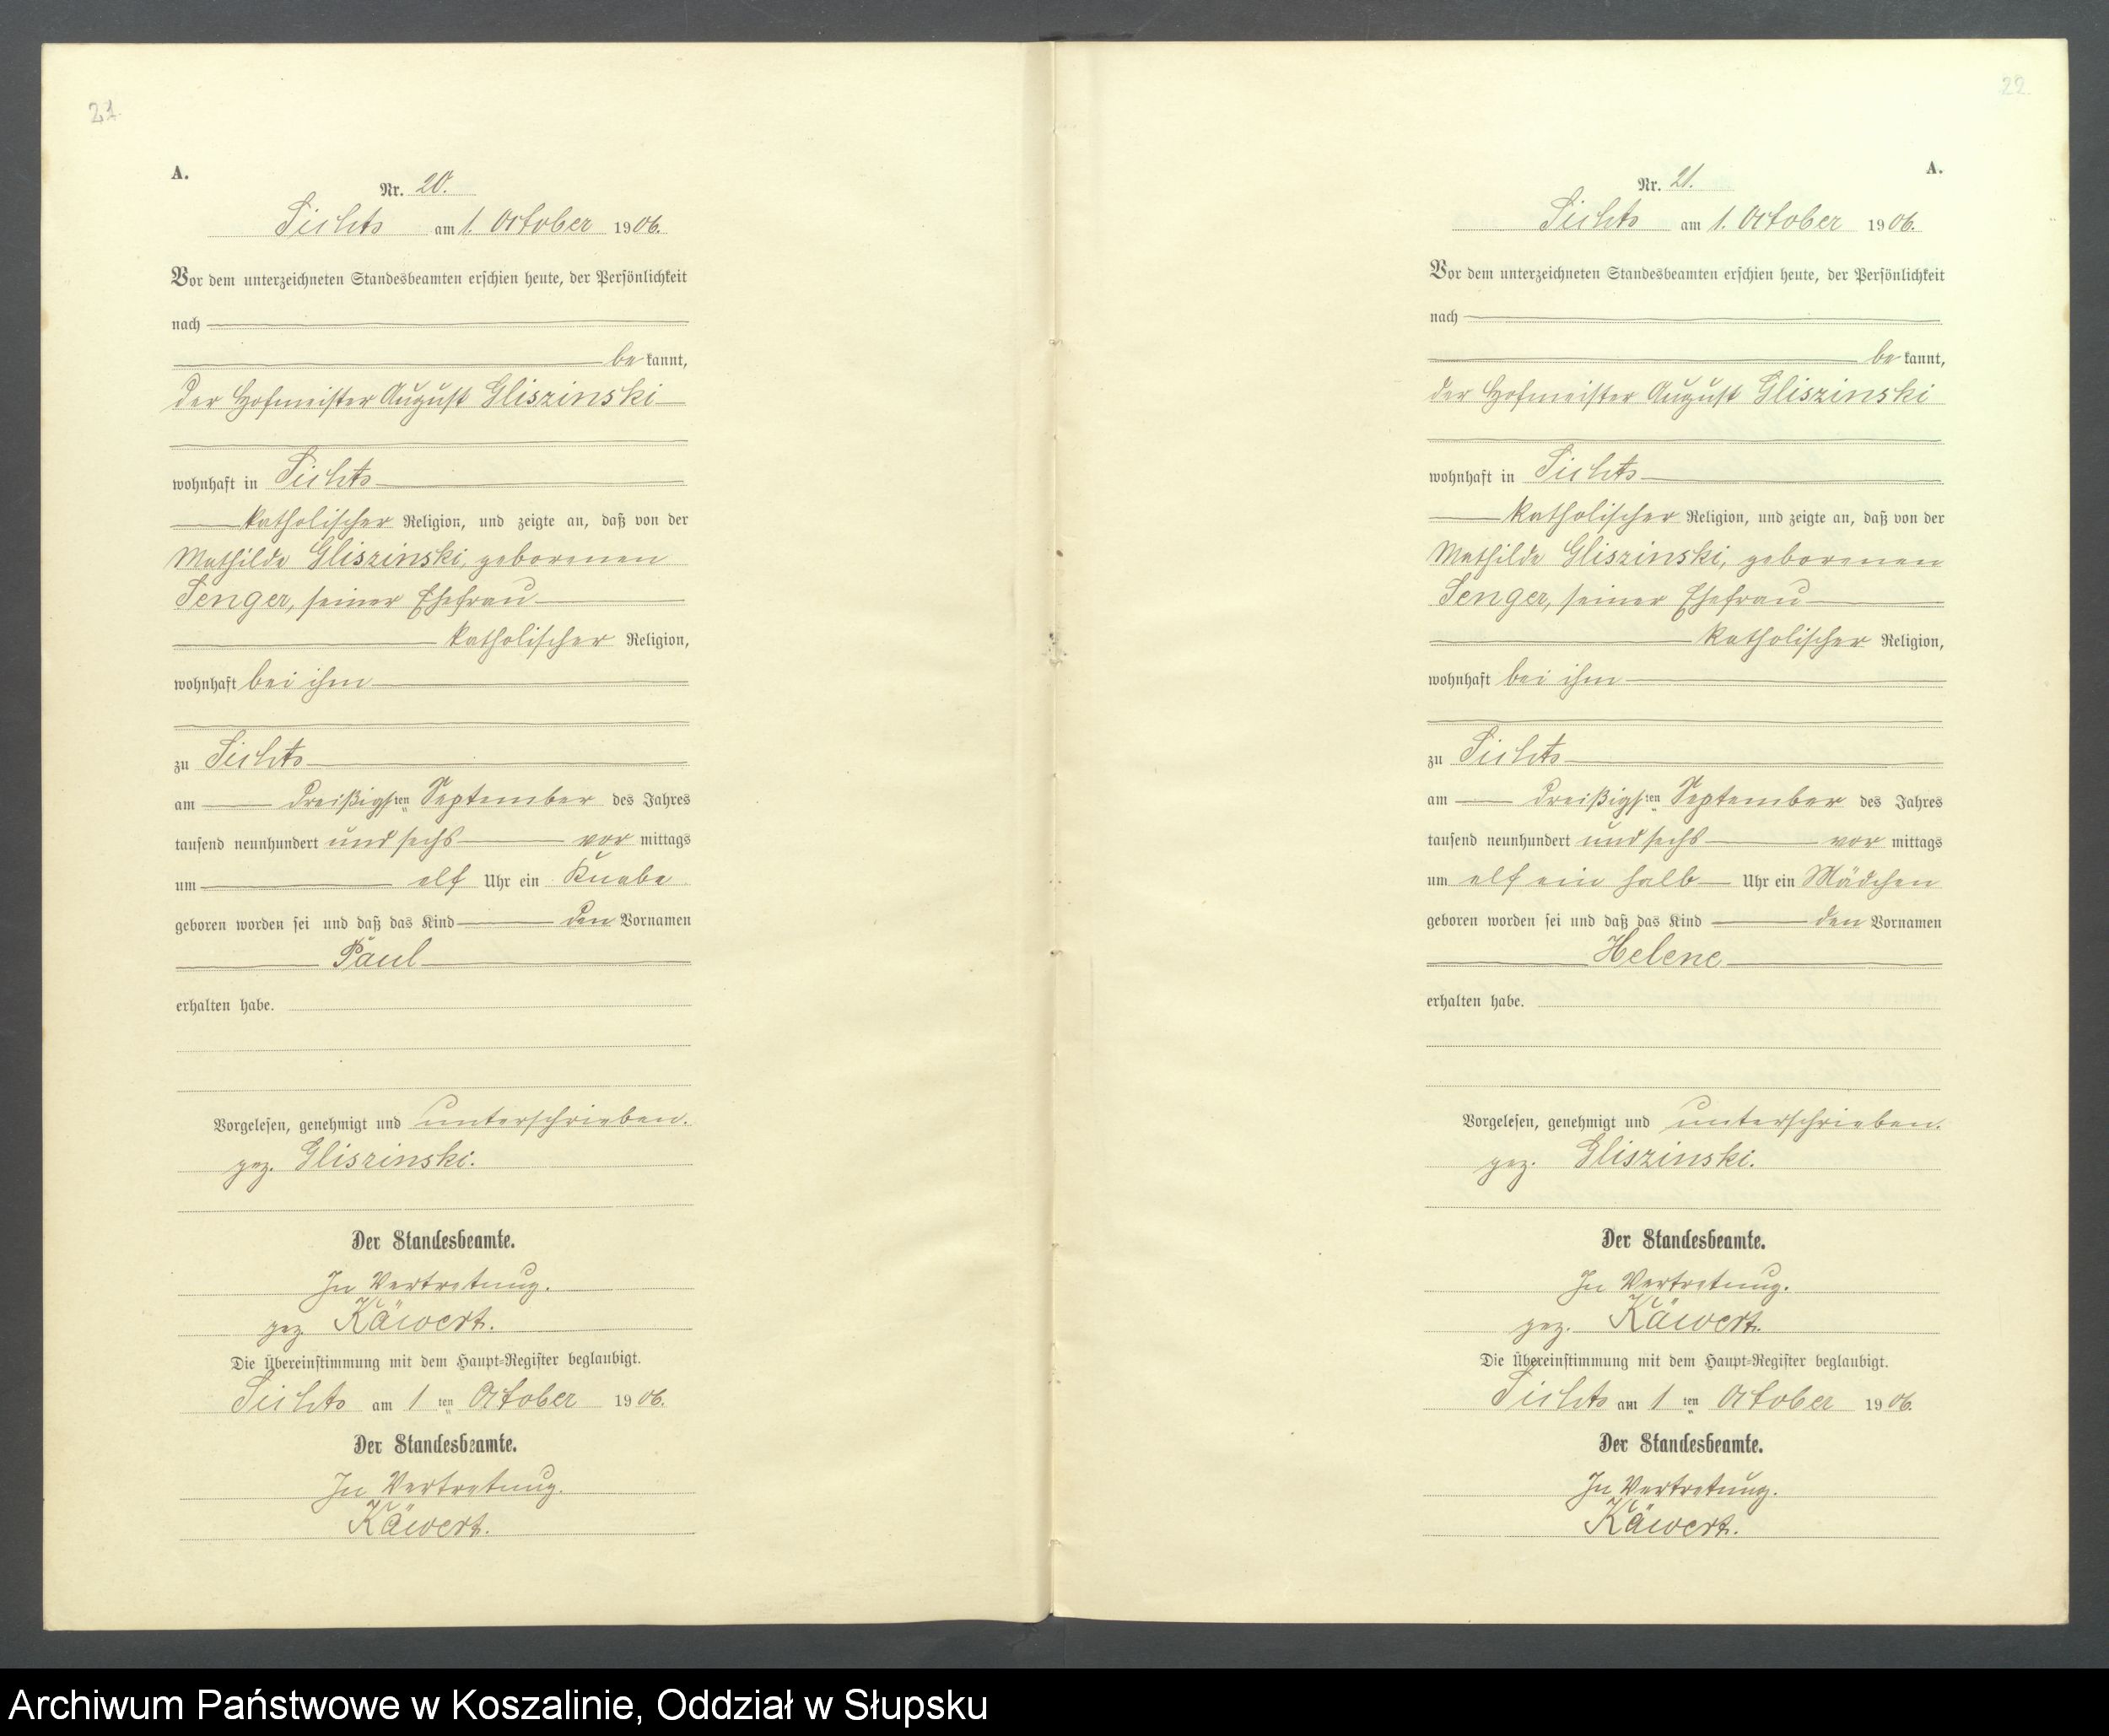 21.
A.
Nr. 20.
Sichts am 1. October 1906.
Vor dem unterzeichneten Standesbeamten erschien heute, der Persönlichkeit
nach
be kannt,
der Hofmeister August Gliszinski
wohnhaft in Sichts
katholischer Religion, und zeigte an, daß von der
Mathilde Gliszinski, geborenen
Senger, seiner Ehefrau
katholischer Religion,
wohnhaft bei ihm
zu Sichts
am dreißigsten September des Jahres
tausend neunhundert und sechs vor mittags
um elf Uhr ein Knabe
geboren worden sei und daß das Kind den Vornamen
Paul
erhalten habe.
Vorgelesen, genehmigt und unterschrieben.
gez. Gliszinski.
Der Standesbeamte.
In Vertretung.
gez. Käwert.
Die Übereinstimmung mit dem Haupt-Register beglaubigt.
Sichts am 1 ten October 1906.
Der Standesbeamte.
In Vertretung.
Käwert.
22.
A.
Nr. 21.
Sichts am 1. October 1906.
Vor dem unterzeichneten Standesbeamten erschien heute, der Persönlichkeit
nach
be kannt,
der Hofmeister August Gliszinski
wohnhaft in Sichts
katholischer Religion, und zeigte an, daß von der
Mathilde Gliszinski, geborenen
Senger, seiner Ehefrau
katholischer Religion,
wohnhaft bei ihm
zu Sichts
am dreißigsten September des Jahres
tausend neunhundert und sechs vor mittags
um elf ein halb Uhr ein Mädchen
geboren worden sei und daß das Kind den Vornamen
Helene
erhalten habe.
Vorgelesen, genehmigt und unterschrieben.
gez. Gliszinski.
Der Standesbeamte.
In Vertretung.
gez. Käwert.
Die Übereinstimmung mit dem Haupt-Register beglaubigt.
Sichts am 1 ten October 1906.
Der Standesbeamte.
In Vertretung.
Käwert.
Archiwum Państwowe w Koszalinie, Oddział w Słupsku